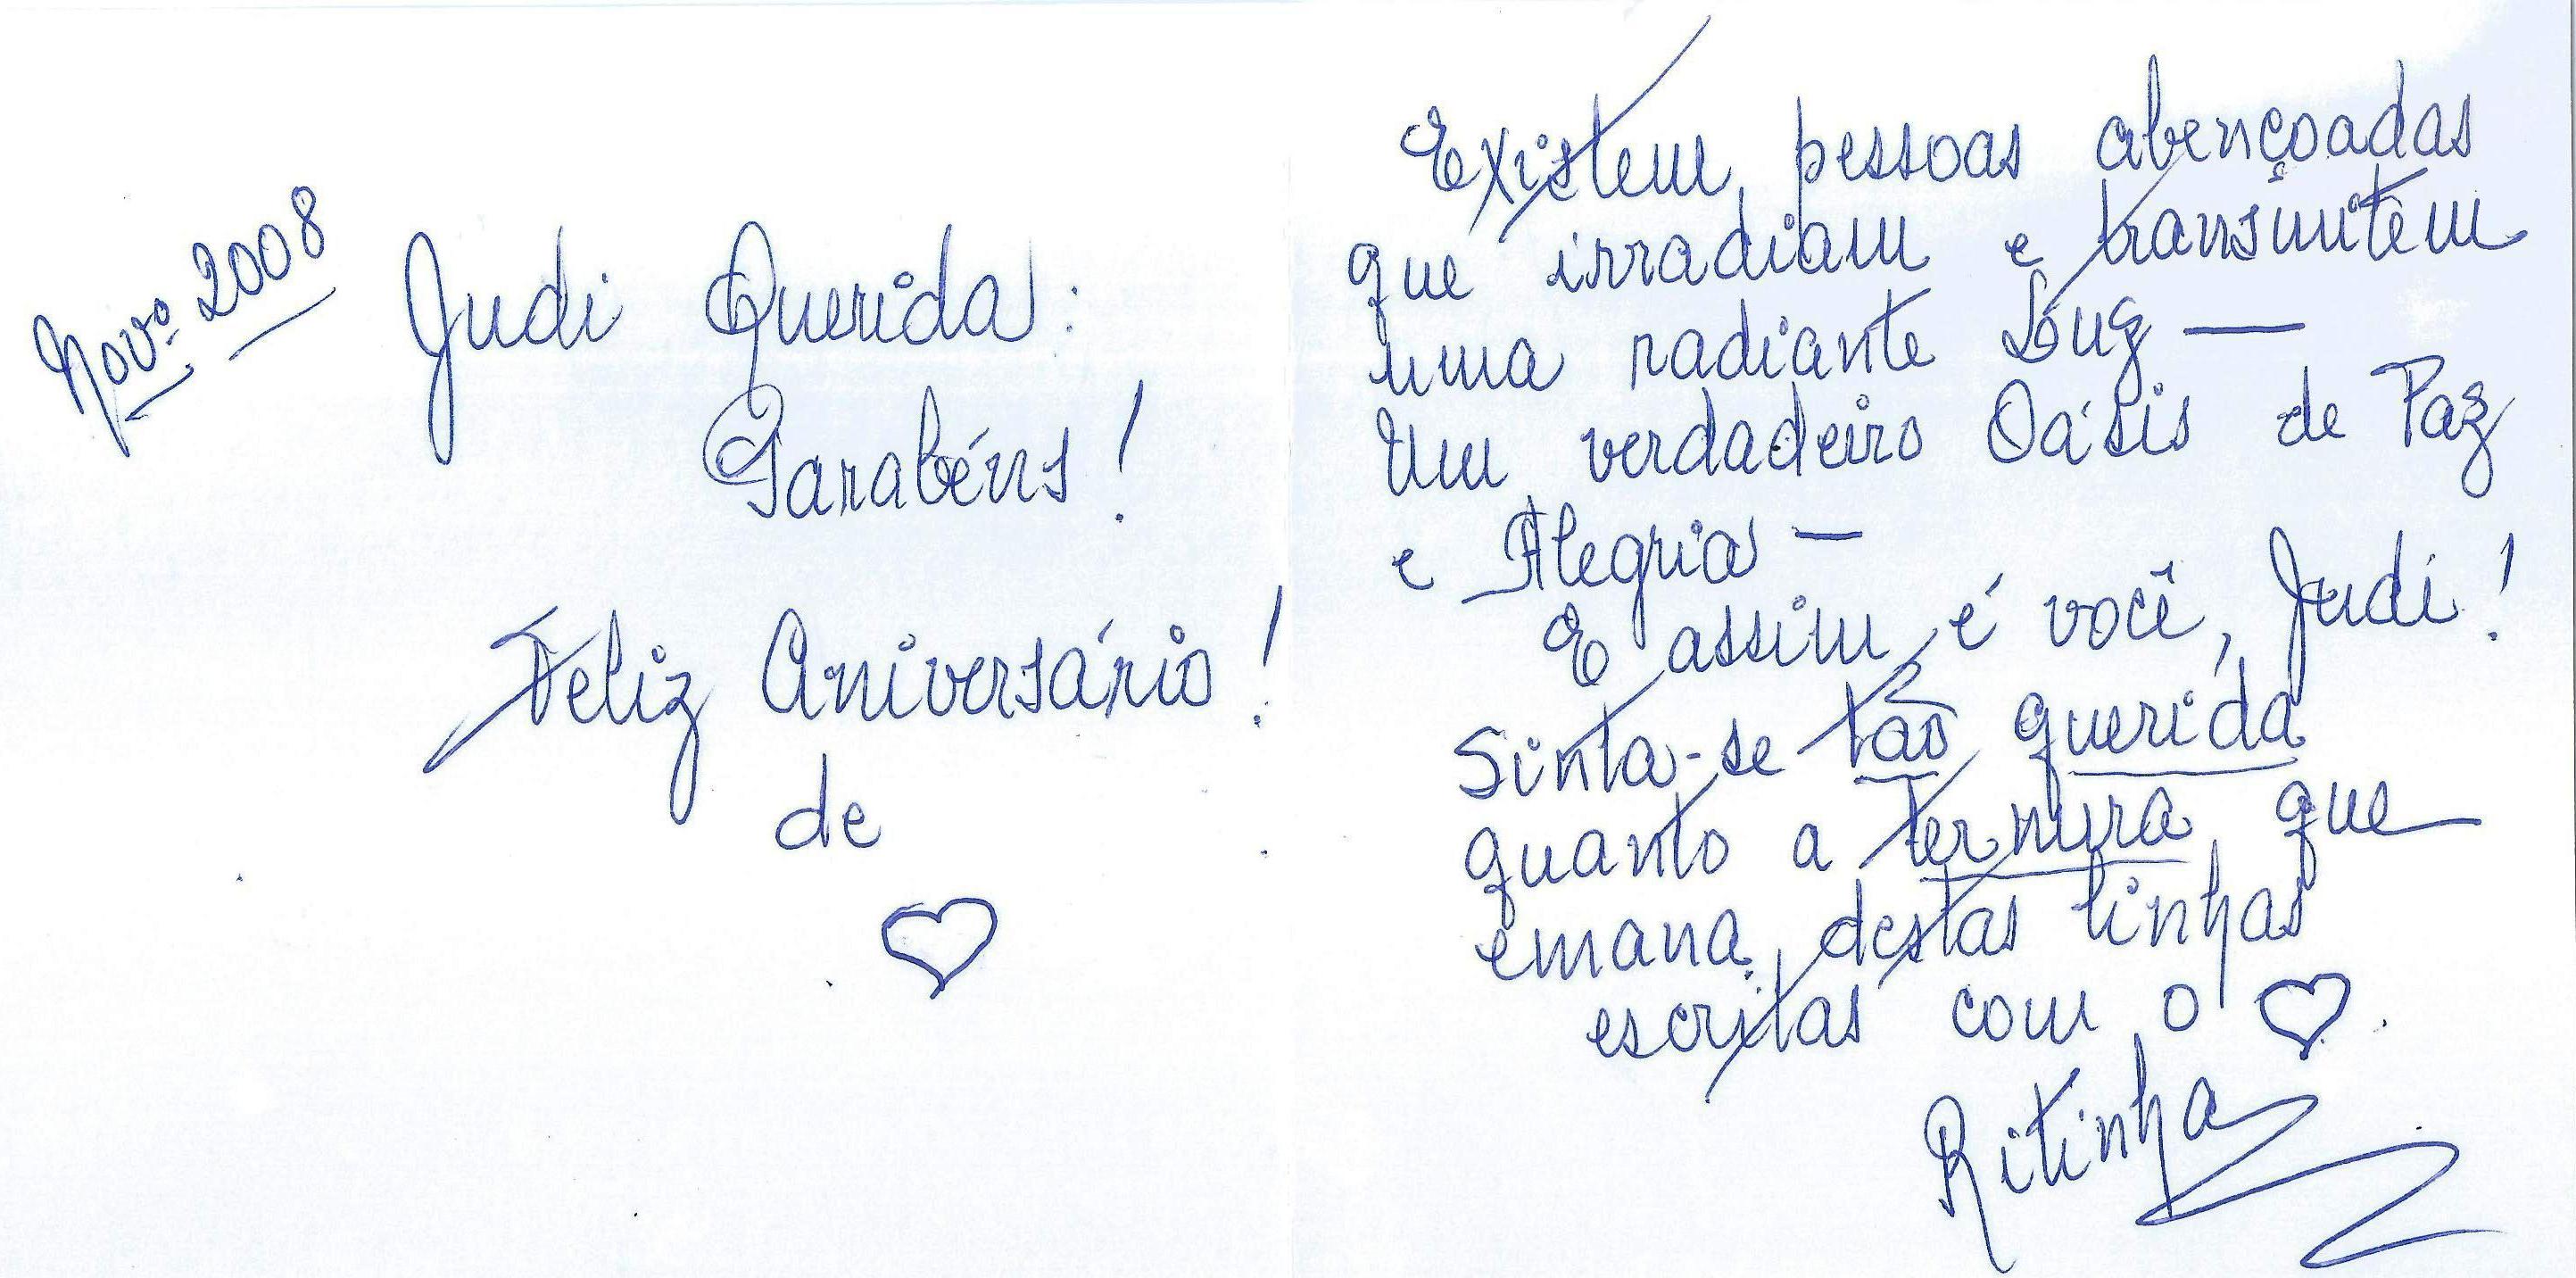 Novº 2008
Judi Querida:
Parabéns!
Feliz Aniversário!
de
♡
Existem pessoas abençoadas
que irradiam e transmitem
uma radiante Luz —
Um verdadeiro Oásis de Paz
e Alegria —
E assim é você, Judi!
Sinta-se tão querida
quanto a ternura que
emana destas linhas
escritas com o ♡.
Ritinha